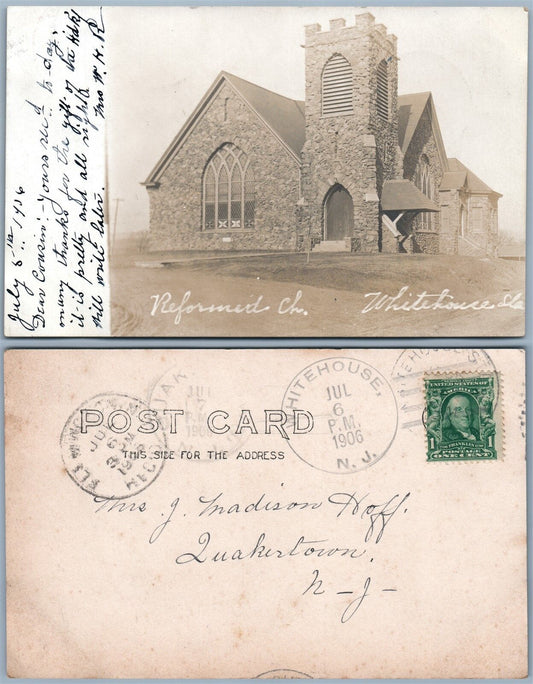 July 5th 1906
Dear Cousin: Yours rec'd to-day,
many thanks for the gift of the kids
it is pretty and all right
will write later. Mrs W. H. R
Reformed Ch. Whitehouse Sta
POST CARD
THIS SIDE FOR THE ADDRESS
WHITEHOUSE,
JUL
6
P.M.
1906
N. J.
JUL
1906
UNITED STATES OF AMERICA
1 1
FRANKLIN
POSTAGE
ONE CENT
Mrs. J. Madison Hoff.
Quakertown.
N-J-